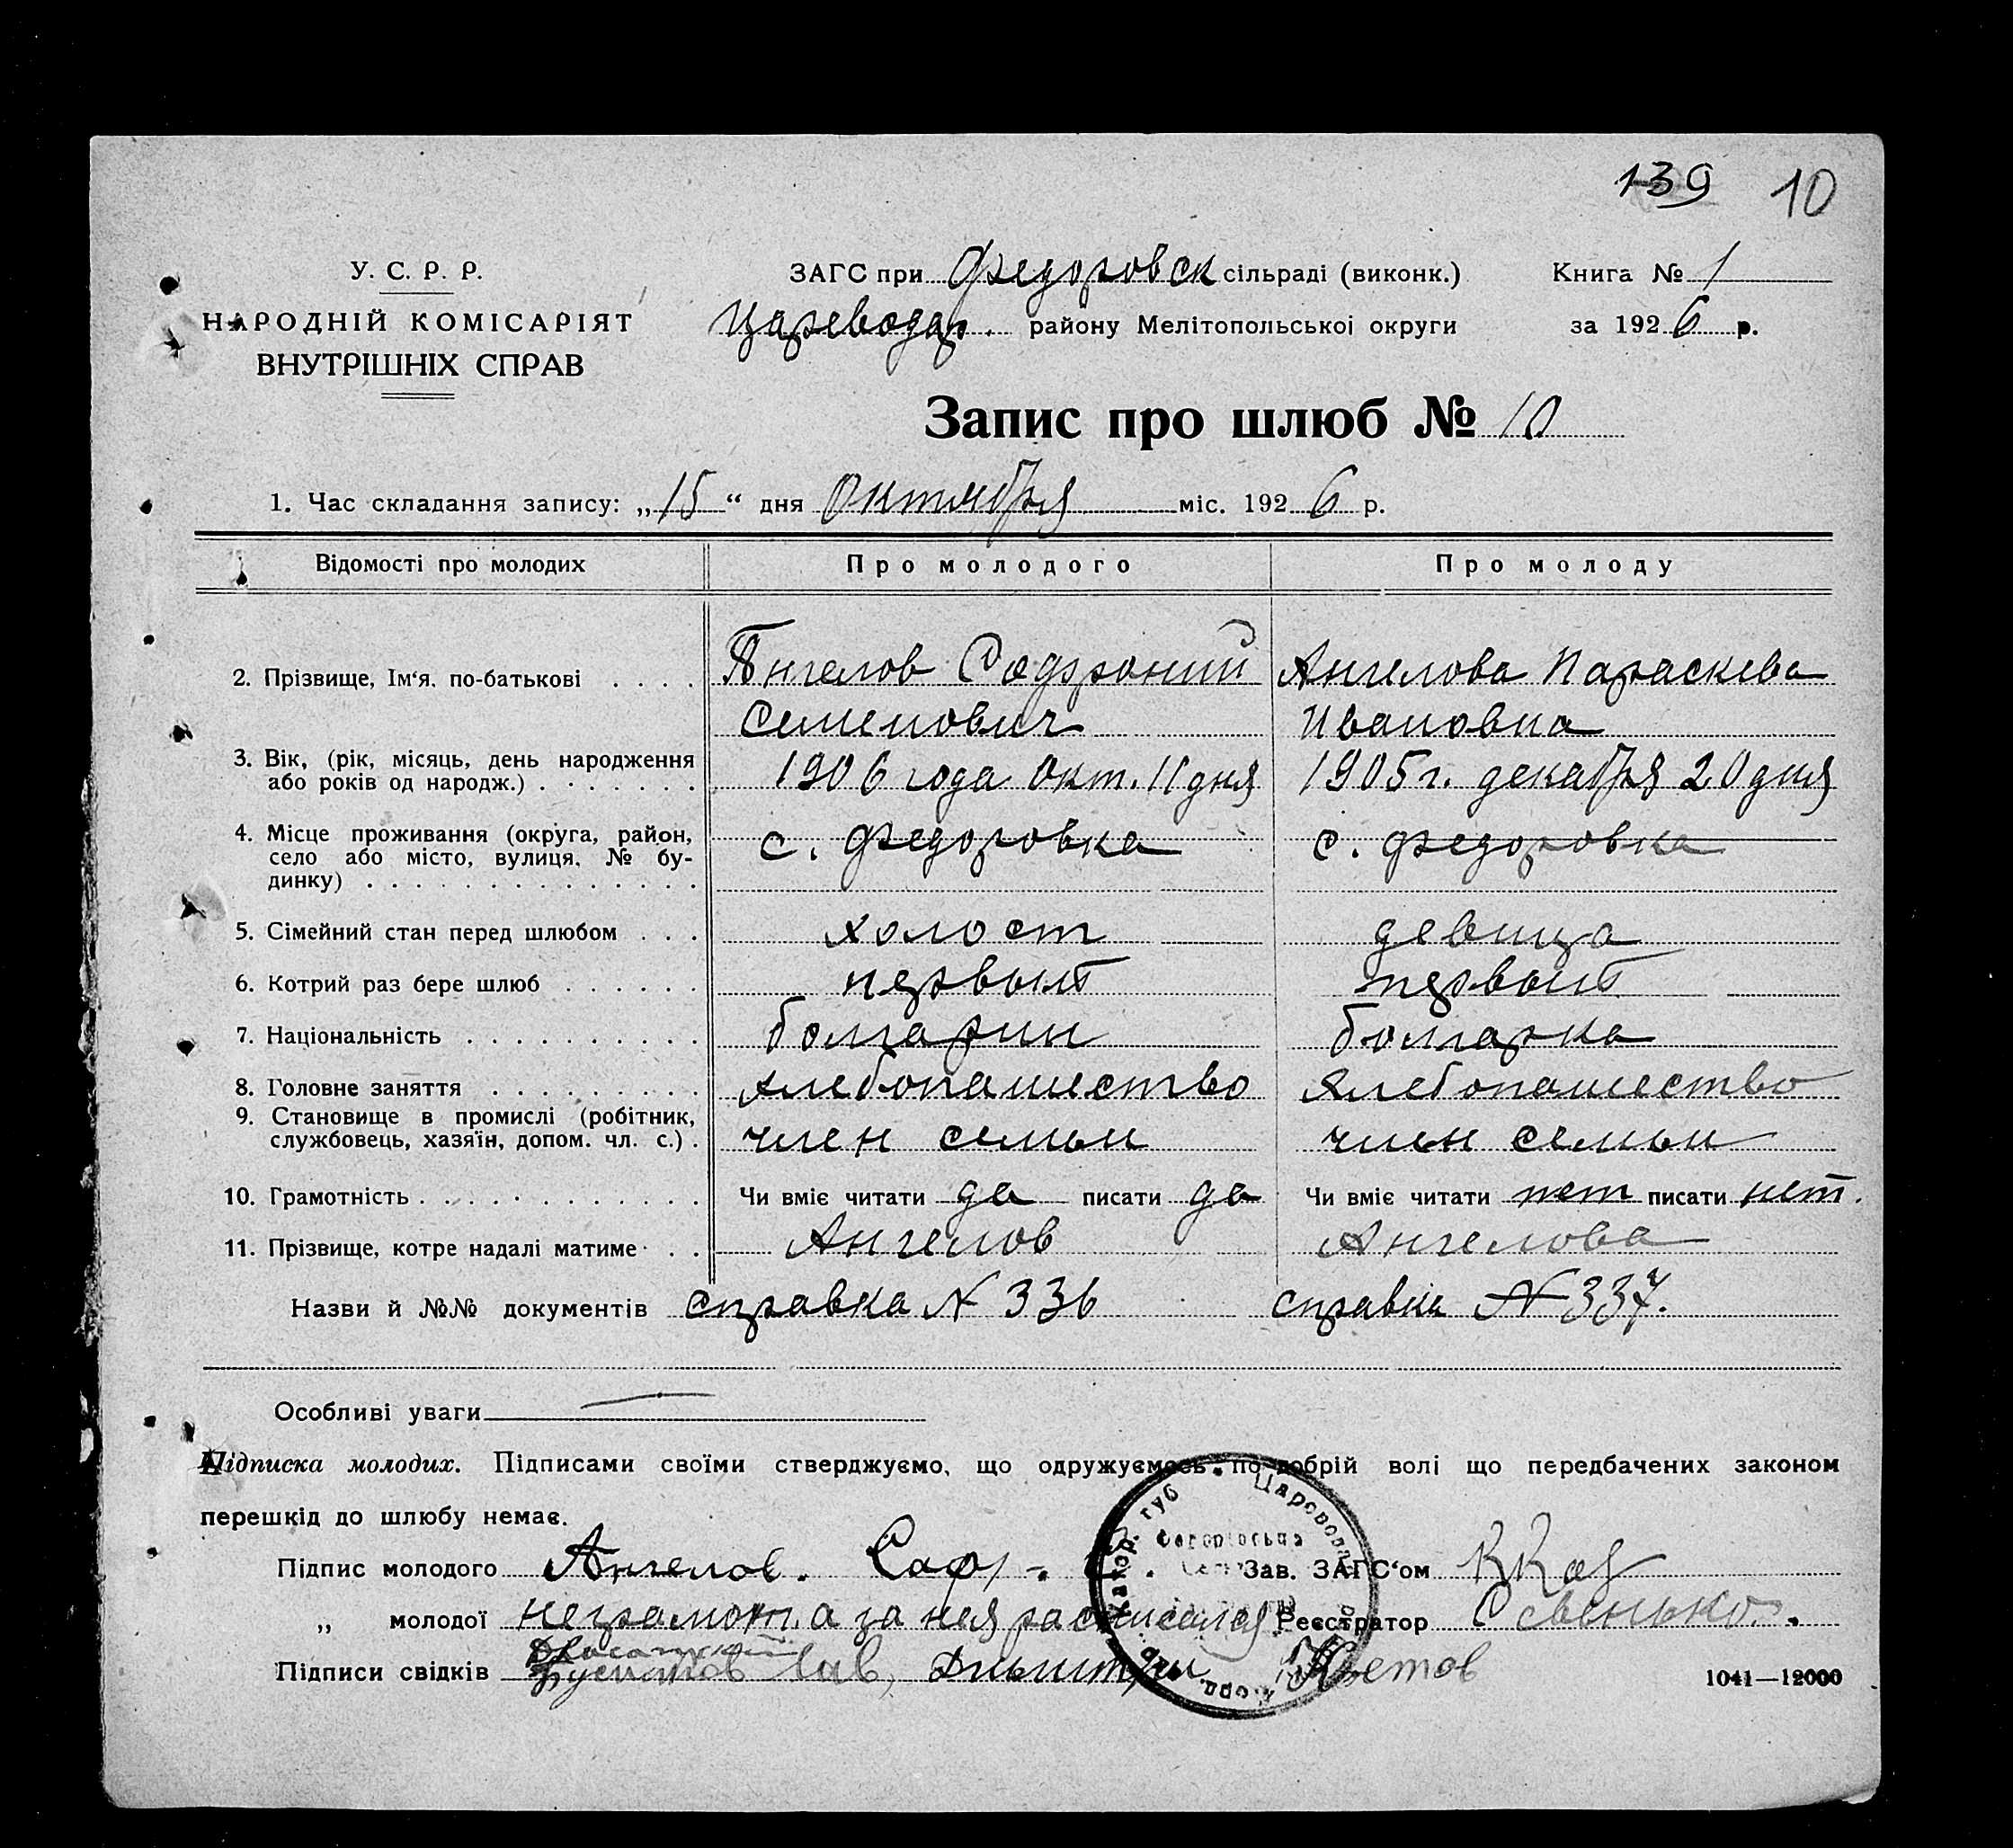 139 10
У. С. Р. Р.
НАРОДНІЙ КОМІСАРІЯТ
ВНУТРІШНІХ СПРАВ
ЗАГС при Федоровск сільраді (виконк.) Книга № 1
Цареводар. району Мелітопольської округи за 1926 р.
Запис про шлюб № 10
1. Час складання запису: „15“ дня Октября міс. 1926 р.
Відомості про молодих Про молодого Про молоду
2. Прізвище, Ім‘я, по-батькові . . . . Ангелов Софроний Ангелова Параскева
Семенович Ивановна
3. Вік, (рік, місяць, день народження
або років од народж.) . . . . . . . 1906 года Окт. 11 дня 1905 г. декабря 20 дня
4. Місце проживання (округа, район,
село або місто, вулиця, № бу-
динку) . . . . . . . . . . . . . . с. Федоровка с. Федоровка
5. Сімейний стан перед шлюбом . . . холост девица
6. Котрий раз бере шлюб . . . . . . первый первый
7. Національність . . . . . . . . . . болгарин болгарка
8. Головне заняття . . . . . . . . . хлебопашество хлебопашество
9. Становище в промислі (робітник,
службовець, хазяїн, допом. чл. с.) . член семьи член семьи
10. Грамотність . . . . . . . . . . . . Чи вміє читати да писати да Чи вміє читати нет писати нет.
11. Прізвище, котре надалі матиме . . . Ангелов Ангелова
Назви й №№ документів справка N 336 справка N 337.
Особливі уваги
Підписка молодих. Підписами своїми стверджуємо, що одружуємось по добрій волі що передбачених законом
перешкід до шлюбу немає.
Підпис молодого Ангелов. Соф. Зав. ЗАГС‘ом
„ молодої неграмотна за нея расписался Реєстратор
Підписи свідків
1041—12000